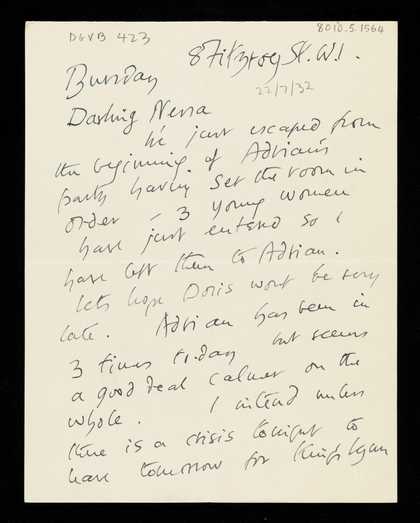 DGVB 423
8010.5.1564
8 Fitzroy St. W.1.
22/7/32
Darling Nessa
I've just escaped from
the beginning of Adrian's
party having set the room in
order – 3 young women
have just entered so I
have left them to Adrian.
Let's hope Doris wont be very
late. Adrian has been in
3 times today but seems
a good deal calmer on the
whole. I intend unless
there is a crisis tonight to
leave tomorrow for